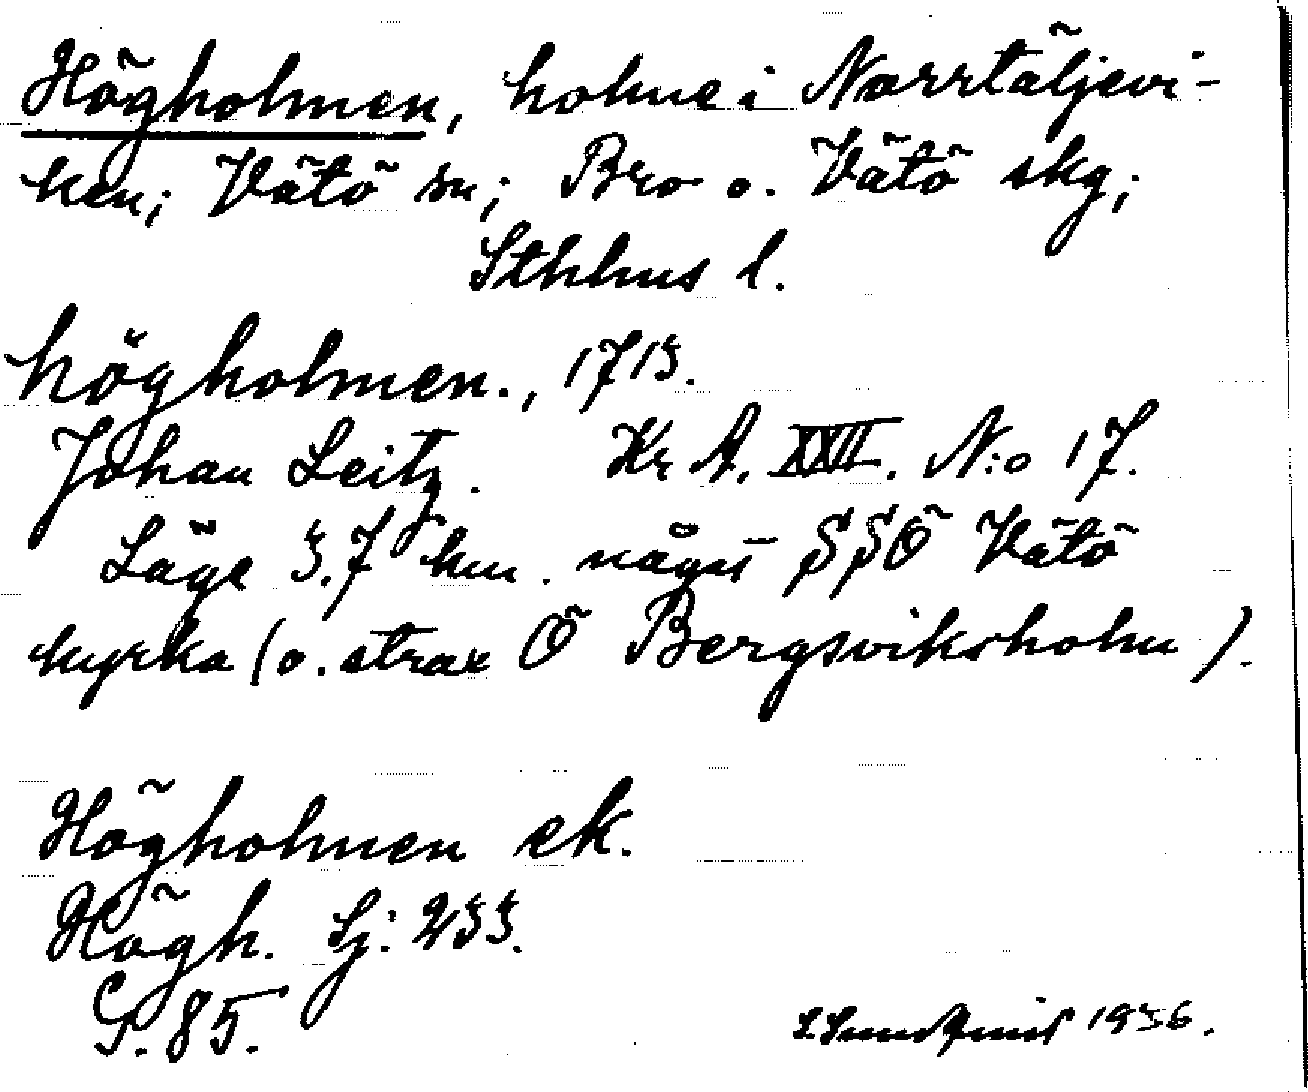 Högholmen, holme i Norrtäljevi-
ken; Vätö sn; Bro o. Vätö skg;
Sthlms l.
högholmen., 1715.
Johan Leitz. Kr A. XXII. N:o 17.
Läge 3.7 km. något SSÖ Vätö
kyrka (o. strax Ö Bergsviksholm).
Högholmen ek.
Högh. Sj: 233.
G. 85.
1936.